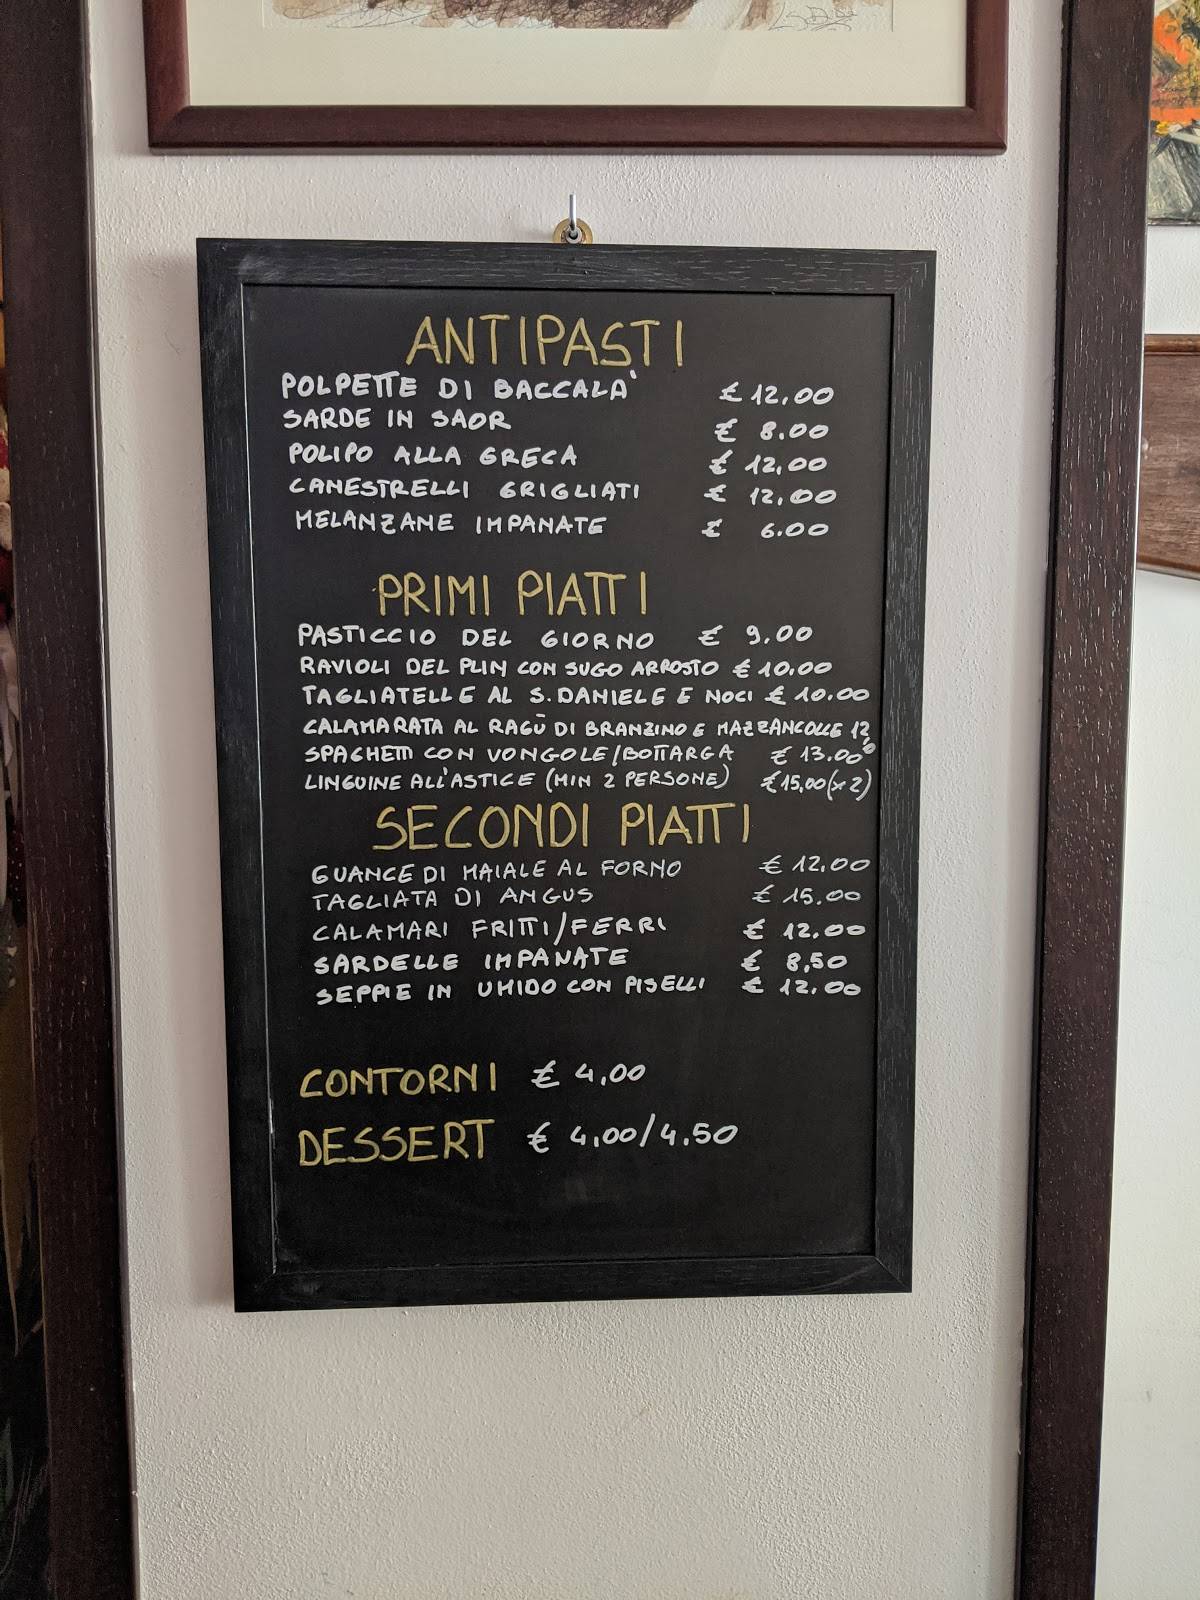 ANTIPASTI
POLPETTE DI BACCALA' € 12,00
SARDE IN SAOR € 8.00
POLIPO ALLA GRECA € 12,00
CANESTRELLI GRIGLIATI € 12,00
MELANZANE IMPANATE € 6.00
PRIMI PIATTI
PASTICCIO DEL GIORNO € 9.00
RAVIOLI DEL PLIN CON SUGO ARROSTO € 10.00
TAGLIATELLE AL S.DANIELE E NOCI € 10.00
CALAMARATA AL RAGÙ DI BRANZINO E MAZZANCOLLE 12,00
SPAGHETTI CON VONGOLE/BOTTARGA € 13.00
LINGUINE ALL'ASTICE (MIN 2 PERSONE) €15,00 (x2)
SECONDI PIATTI
GUANCE DI MAIALE AL FORNO € 12.00
TAGLIATA DI ANGUS € 15.00
CALAMARI FRITTI/FERRI € 12.00
SARDELLE IMPANATE € 8,50
SEPPIE IN UMIDO CON PISELLI € 12.00
CONTORNI € 4,00
DESSERT € 4,00/4.50